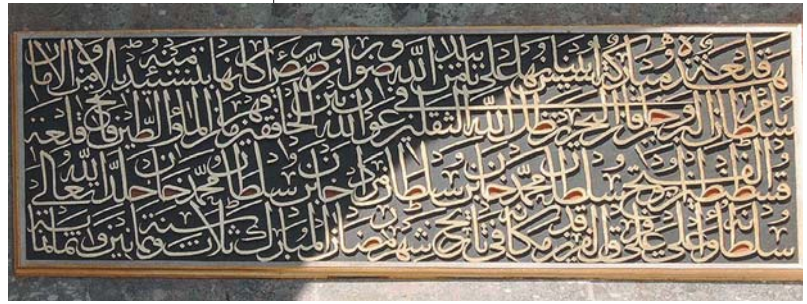 هذه قلعة مباركة أسس بنيانها على تأييد الله ورضوان ورصص أركانها الأمن والأمان
بأمر سلطان البرين وخاقان البحرين ظل الله في الثقلين عون الله بين الخافقين قهرمان الماء والطين فاتح قلعة
قسطنطينية أبو الفتح سلطان محمد خان بن سلطان مراد خان بن سلطان محمد خان خلد الله تعالى
سلطانه وأعلى على فرق الفرقدين مكانه في تاريخ شهر رمضان المبارك سنة ثلاث وثمانين وثمانمائة